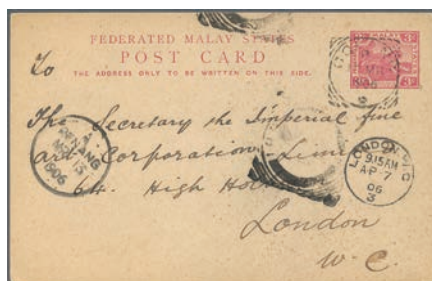 FEDERATED MALAY STATES
POST CARD
THE ADDRESS ONLY TO BE WRITTEN ON THIS SIDE.
To
The Secretary the Imperial fine
art Corporation Limi
64. High Hol
London
W. C.
PENANG
1906
LONDON
9.15AM
AP 7
06
3